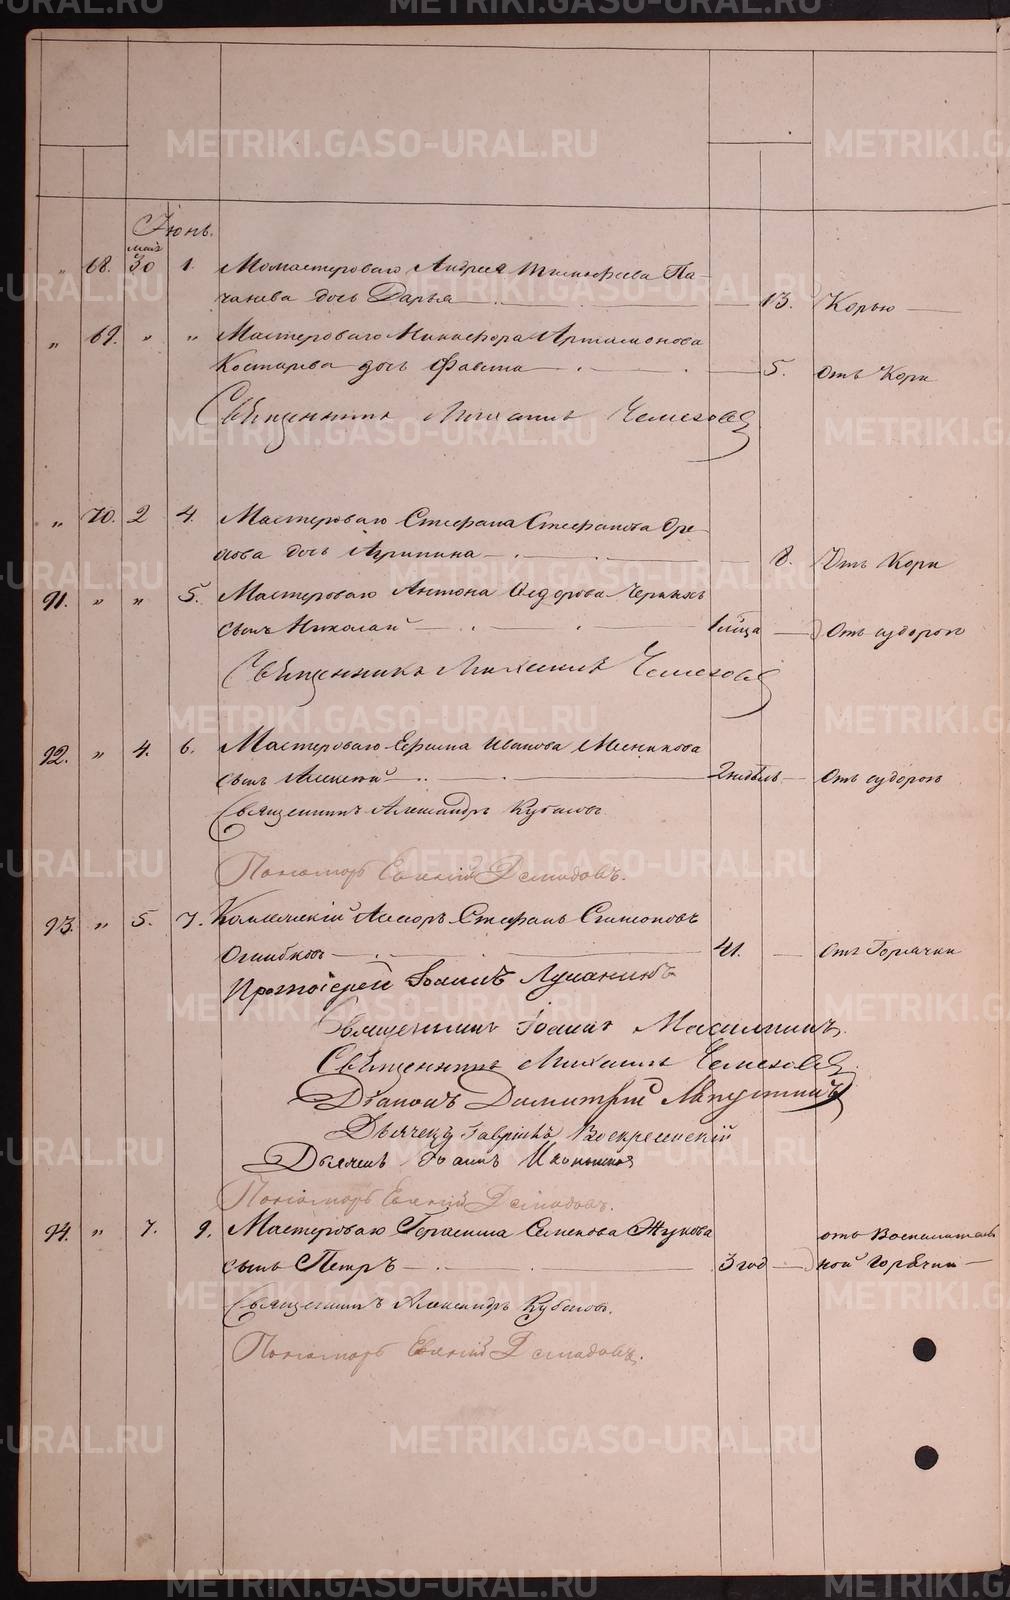 Іюнь.
май
" 68. 30 1. Мастероваго Андрея Тимофеева
дочь Дарья 13. Корью
" 69. " " Мастероваго Никифора Артамонова
Костарева дочь Фавста 5. Отъ Кори
Священникъ Михаилъ Чемезовъ
" 70. 2 4. Мастероваго Стефана Стефанова Оре-
хова дочь Агрипина 8. Отъ Кори
91. " " 5. Мастероваго Антона Федорова Черныхъ
сынъ Николай 1 м͠ца Отъ судорогъ
Священникъ Михаилъ Чемезовъ
92. " 4. 6. Мастероваго Ефима Иванова Мясникова
сынъ Алексей 2 недѣль Отъ судорогъ
Священникъ Александръ Кубасовъ.
Пономарь Евгеній Демидовъ.
93. " 5. 7. Коллежскій Асесоръ Стефанъ Симоновъ
Ошибковъ 41. Отъ Горячки
Протоіерей Іоаннъ Луканинъ
Священникъ Іоаннъ
Священникъ Михаилъ Чемезовъ.
Діаконъ Димитрій Лапустинъ
Дьячекъ Гавріилъ Воскресенскій
Дьячекъ Іоаннъ
Пономарь Евгеній Демидовъ.
94. " 7. 9. Мастероваго Герасима Семенова Жукова отъ Воспалитель
сынъ Петръ 3 год ной Горячки
Священникъ Александръ Кубасовъ.
Пономарь Евгеній Демидовъ.
METRIKI.GASO-URAL.RU